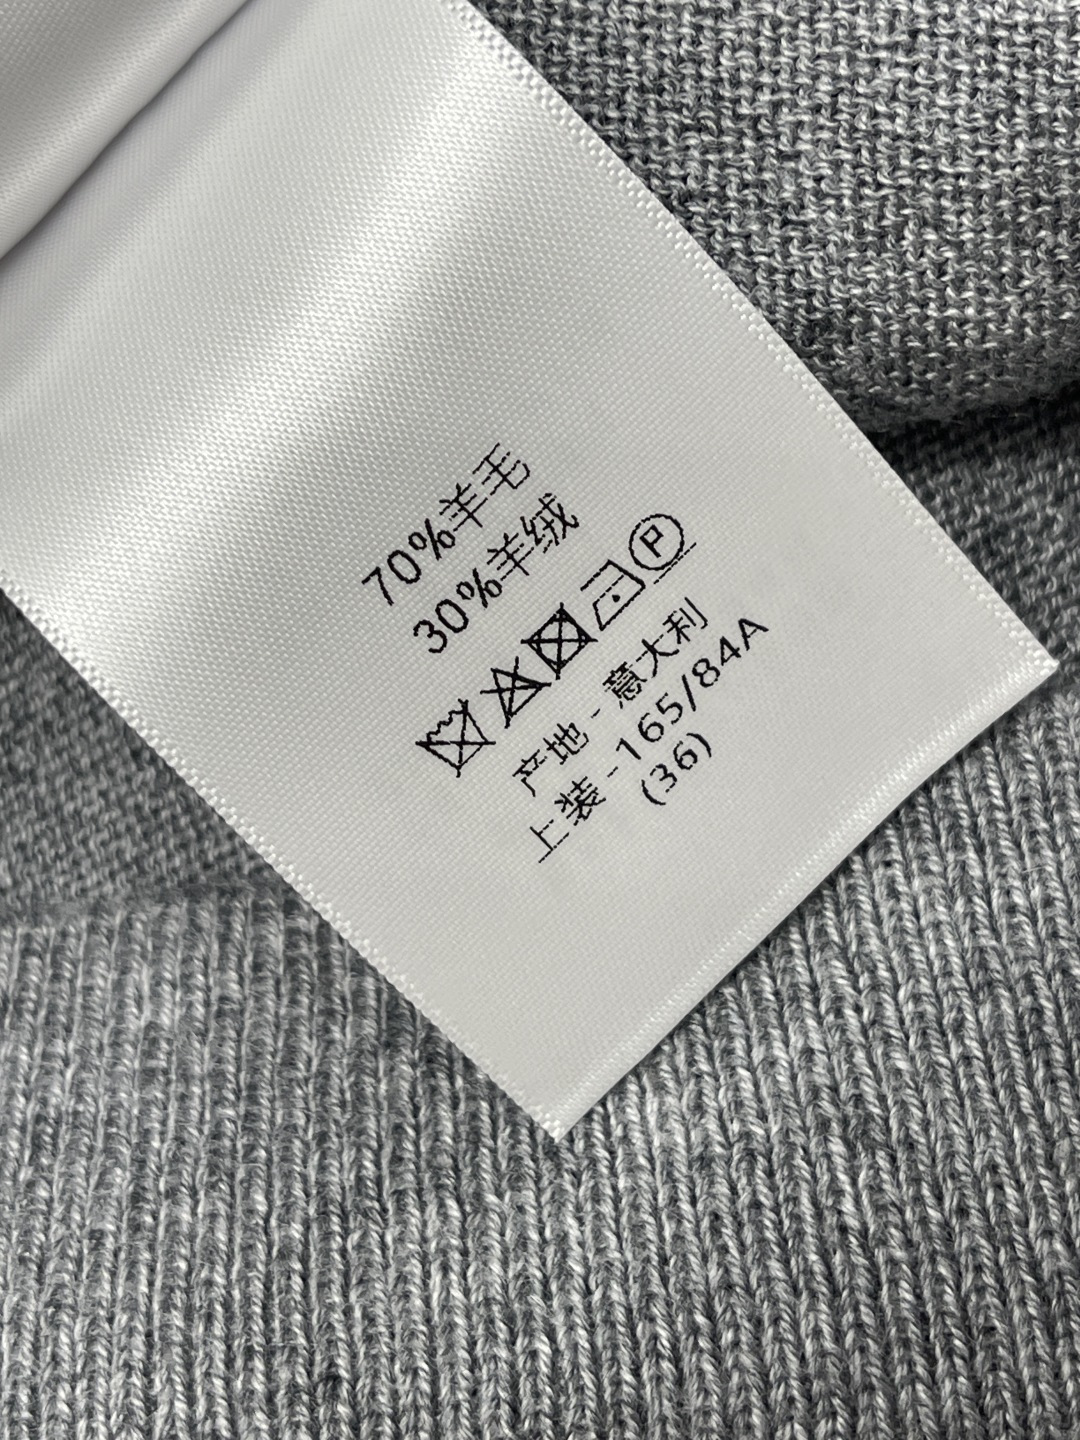 70%羊毛
30%羊绒
P
产地 - 意大利
上装 -165/84A
(36)